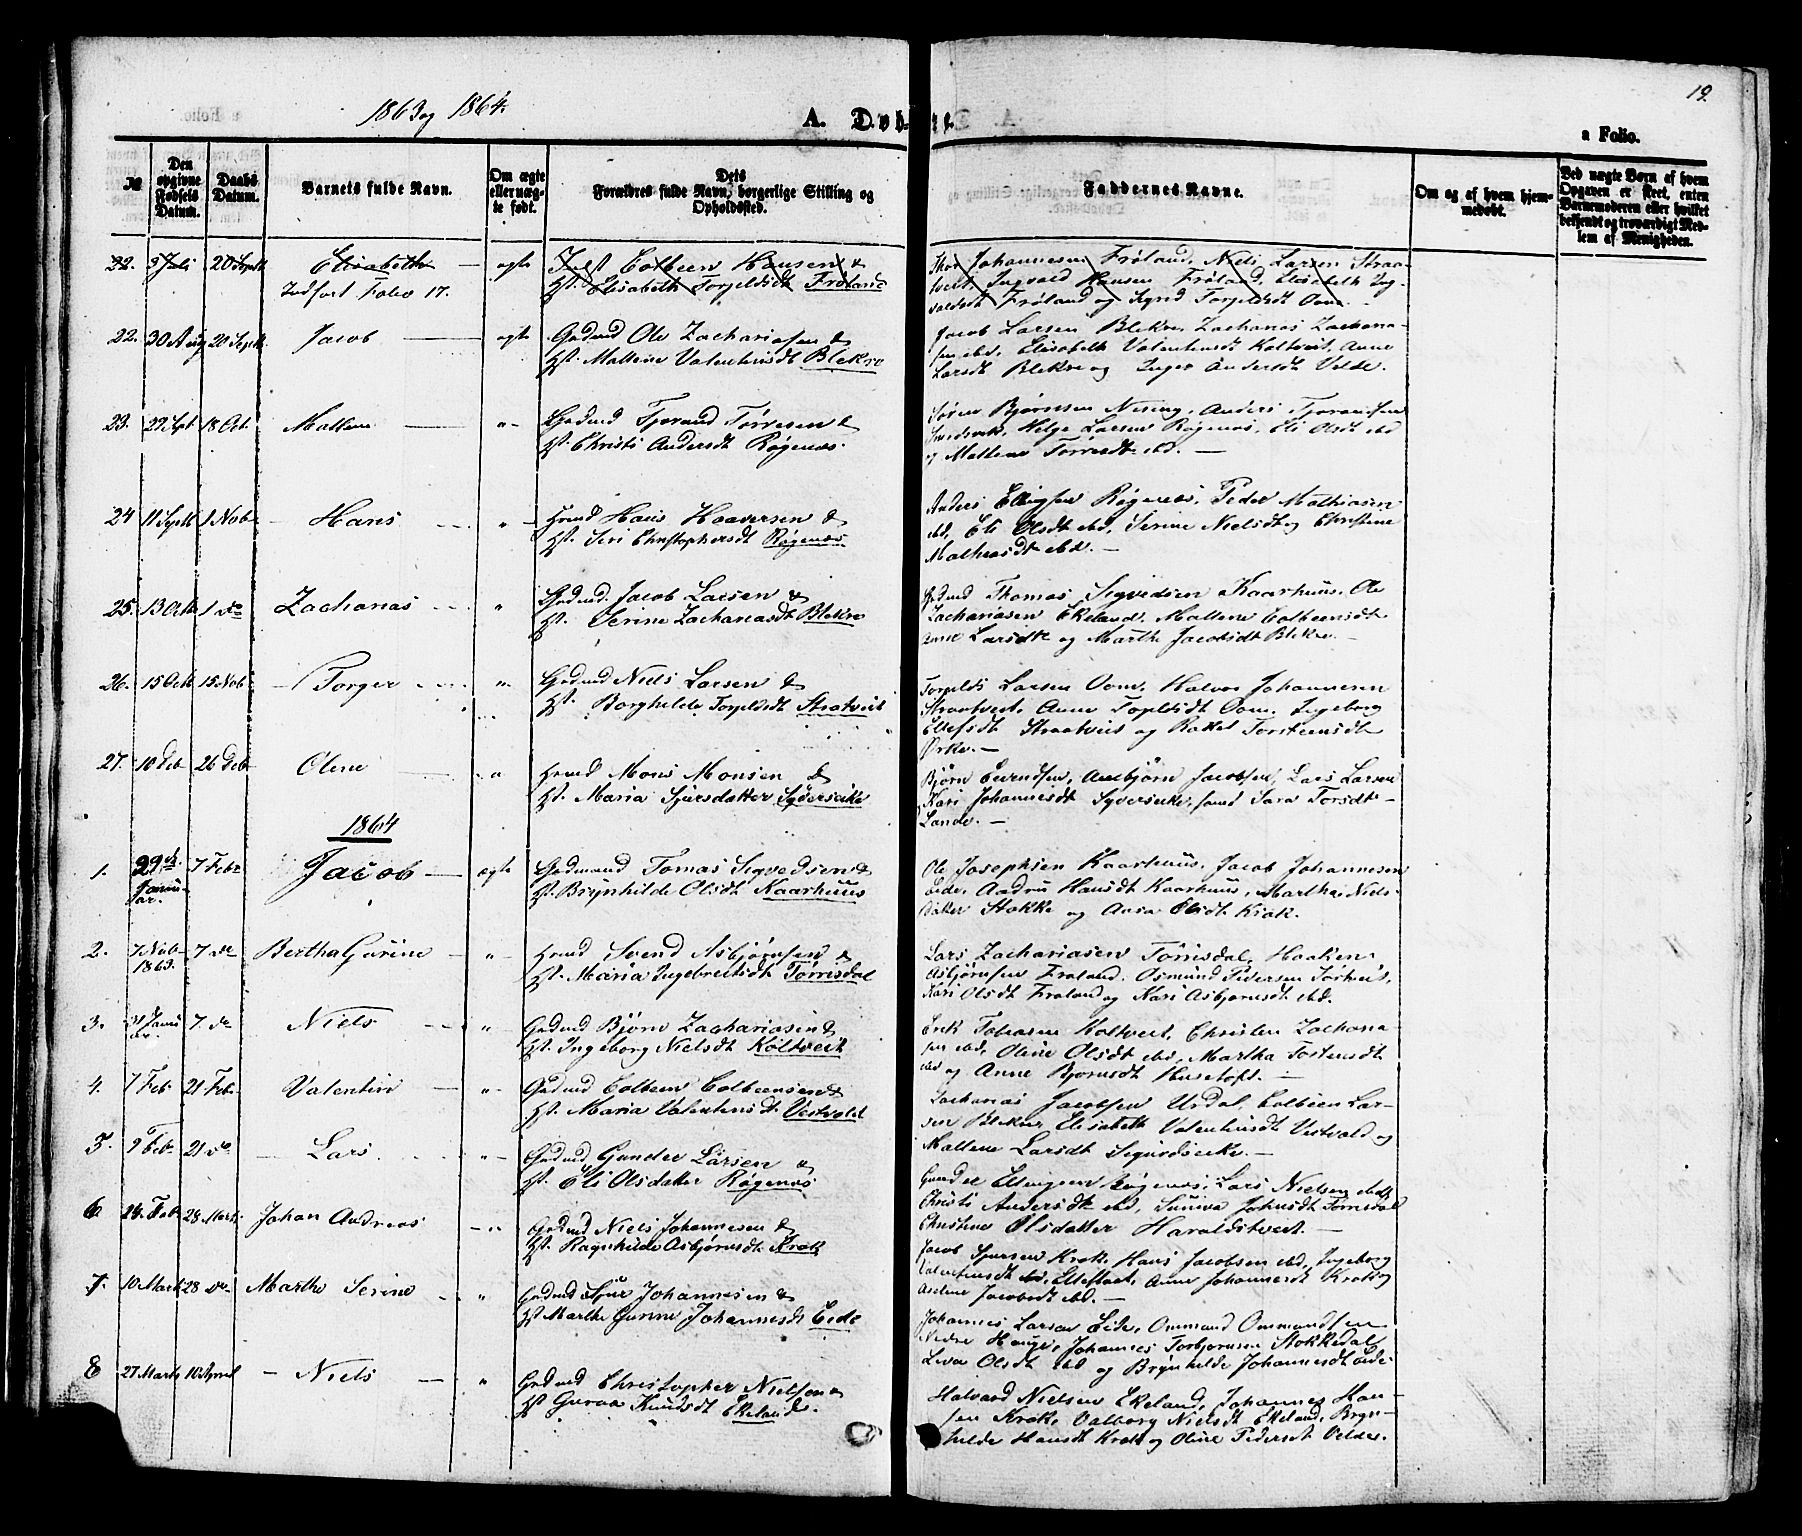 1863 og 1864.
A. Døbte.
19.
a Folio.
№
Den opgivne Fødsels Datum.
Daabs Datum.
Barnets fulde Navn.
Om ægte eller uægte født.
Dets Forældres fulde Navn, borgerlige Stilling og Opholdssted.
Faddernes Navne.
Om og af hvem hjemmedøbt.
Ved uægte Børn af hvem Opgaven er skeet, enten Barnemoderen eller hvilket bekjendt og troværdigt Medlem af Menigheden.
22. 3 Juli 20 Septb Elisabeth — ægte
Indført Folio 17.
Colbeen Hansen &
Hst. Elisabeth Torjeldsdt Frøland
Johannesen Frøland, Niels Larsen Straa-
tveit, Ingvald Hansen Frøland, Elisabeth Ing-
valdsdt Frøland og Sigrid Torjeldsdt Oom.
22. 30 Aug 20 Septb Jacob — ægte
Gadmd Ole Zachariasen &
Hst. Mallene Valentinsdt Blekre
Jacob Larsen Blekre, Zacharias Zacharia-
sen ibd, Elisabeth Valentinsdt Koltveit, Anne
Larsdt Blekre og Inger Andersdt Velde.
23. 22 Spt 18 Oct. Mallene — "
Gadmd Tjerand Tørresen &
Hst. Christi Andersdt Røgenæs.
Søren Bjørnsen Nising, Anders Tjerandsen
Smedsvik, Helge Larsen Røgenæs, Eli Olsdt ibd
og Mallene Tørresdt ibd. —
24 11 Septb 1 Nob — Hans — "
Hmd Hans Haaversen &
Hst. Seri Christophersdt Røgenæs
Anders Ellingsen Røgenæs, Peder Mathiasen
ibd, Eli Olsdt ibd, Serine Nielsdt og Christine
Mathiasdt ibd. —
25. 13 Octb 1 do Zacharias — "
Gadmd. Jacob Larsen &
Hst. Serine Zachariasdt Blekre
Gadmd Thomas Sigvedsen Kaarhuus, Ole
Zachariasen Ekeland, Mallene Colbeensdt
Anne Larsdt og Marthe Jacobsdt Blekre. —
26. 15 Octb 15 Nob — Torger — "
Gadmd Niels Larsen &
Hst. Borghilde Torjeldsdt Stratveit
Torjelds Larsen Oom, Halvor Johannesen
Straatveit, Anne Torjeldsdt Oom, Ingeborg
Ellefsdt Straatveit og Rakel Torsteinsdt
Ørke. —
27. 10 Deb 26 Deb Oline — "
Hmd Mons Monsen &
Hst. Maria Sjursdatter Syverseike
Bjørn Eevindsen, Asbjørn Jacobsen, Lars Larsen
Kari Johannesdt Syverseike, samt Sara Torsdt
Lande. —
1864
1. 29d. Januar. 7 Febr Jacob — ægte
Gadmand Tomas Sigvedsen &
Hst. Brynhilde Olsdt Kaarhuus
Ole Josephsen Kaarhuus, Jacob Johannesen
Eide, Hansdt Kaarhuus, Martha Niels-
datter Stokke og Anna Olsdt Krok.
2. 7 Nob 1863. 7 do Bertha Gurine — "
Hmd Svend Asbjørnsen &
Hst. Maria Ingebretsdt Tørrisdal
Lars Zachariasen Tørrisdal, Haaken
Asbjørnsen Frøland, Osmund Pedersen Sørtveit,
Kari Olsdt Frøland og Kari Asbjørnsdt ibd.
3. 31 Januar. 7. do Niels — "
Gadmd Bjørn Zachariasen &
Hst. Ingeborg Nielsdt Koltveit
Erik Tobiasen Koltveit, Christen Zacharia-
sen ibd, Oline Olsdt ibd, Martha Tostensdt
ibd og Anne Bjørnsdt Husetoft. —
4. 7 Feb. 21 Feb. Valentin — "
Gadmd Colbeen Colbeensen &
Hst. Maria Valentinsdt Vestvold
Zacharias Jacobsen Urdal, Colbeen Lar-
sen Blekre, Elisabeth Valentinsdt Vestvold og
Mallene Larsdt Sigurdseike. —
5. 9 Feb. 21 do — Lars. — "
Gadmd Gunder Larsen &
Hst. Eli Olsdatter Røgenæs
Gunder Ellingsen Røgenæs, Lars Nielsen ibd,
Christi Andersdt ibd, Sunniva Johnsdt Tørrisdal
Christine Olsdatter Haraldstveit. —
6. 24. Feb. 28 Marts Johan Andreas — "
Gadmd Niels Johannesen &
Hst. Ragnhilde Asbjørnsdt. Krok
Jacob Sjursen Krok, Hans Jacobsen ibd, Ingeborg
Valentinsdt, Anne Johannesdt Krok og
Axeline Jacobsdt ibd. —
7. 10 Marts 28 do. Marthe Serine — "
Gadmd Sjur Johannesen &
Hst Marthe Gurine Johannesdt Eide
Johannes Larsen Eide, Ommund Ommundsen
Nedre Hauge, Johannes Torbjørnsen Stokkedal,
Lisa Olsdt ibd og Brynhilde Johannesdt Eide
8 27 Marts 10 April — Niels — "
Gadmd Christopher Nielsen &
Hst Guroa Knudsdt Ekeland.
Halvard Nielsen Ekeland, Johannes Han-
sen Krok, Valborg Nielsdt Ekeland, Bryn-
hilde Hansdt Krok og Oline Pedersdt Velde.